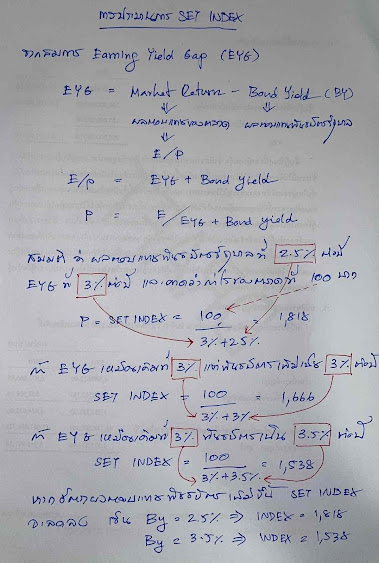 การประมาณการ SET INDEX
จากสมการ Earning Yield Gap (EYG)
EYG = Market Return - Bond Yield (BY)
⇓ ⇓
ผลตอบแทนของตลาด ผลตอบแทนพันธบัตรรัฐบาล
⇓
E/P
E/P = EYG + Bond Yield
P = E / EYG + Bond yield
สมมติ ที่ ผลตอบแทนพันธบัตรรัฐบาลที่ 2.5% ต่อปี
EYG ที่ 3% ต่อปี และคาดว่ากำไรของตลาดที่ 100 บาท
P = SET INDEX = 100 / 3% + 2.5% = 1,818
ถ้า EYG เหมือนเดิมที่ 3% แต่พันธบัตรเพิ่มเป็น 3% ต่อปี
SET INDEX = 100 / 3% + 3% = 1,666
ถ้า EYG เหมือนเดิมที่ 3% พันธบัตรเป็น 3.5% ต่อปี
SET INDEX = 100 / 3% + 3.5% = 1,538
ผลตอบแทนพันธบัตรเพิ่มขึ้น SET INDEX
จะลดลง เช่น By = 2.5% ⇒ INDEX = 1,818
By = 3.5% ⇒ INDEX = 1,538